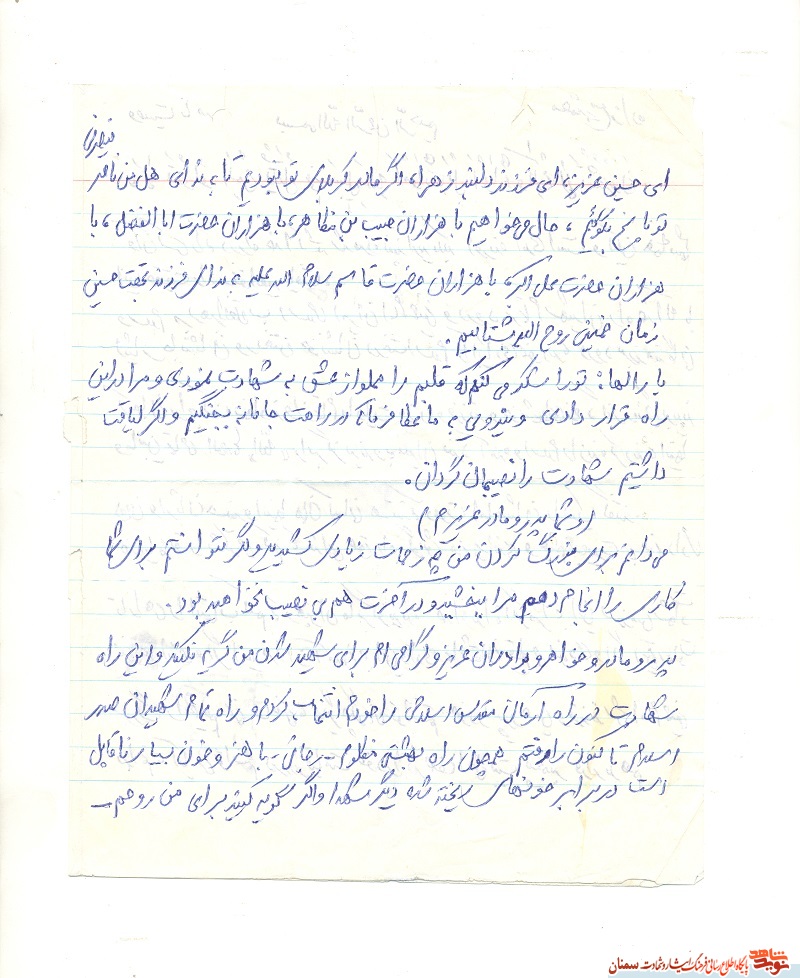 ای حسین عزیز، ای فرزند دلبند زهرا، اگر ما در کربلای تو نبودیم تا به ندای هل من ناصر
تو پاسخ بگوئیم، حال می‌خواهیم با هزاران حبیب بن مظاهر، با هزاران حضرت اباالفضل، با
هزاران حضرت علی اکبر، با هزاران حضرت قاسم سلام الله علیه به ندای فرزند بحقت حسین
زمان خمینی روح الله بشتابیم.
بارالها: تو را شکر می کنم که قلبم را مملو از عشق به شهادت نمودی و مرا در این
راه قرار دادی و نیرویی به ما عطا فرما که در راهت جانانه بجنگیم و اگر لیاقت
داشتیم شهادت را نصیبمان گردان.
(و شما پدر و مادر عزیزم)
می‌دانم برای بزرگ کردن من چه زحمات زیادی کشیدید و اگر نتوانستم برای شما
کاری را انجام دهم مرا ببخشید و در آخرت هم بی نصیب نخواهید بود.
پدر و مادر و خواهر و برادران عزیز و گرامی ام برای شهید شدن من گریه نکنید و این راه
شهادت در راه آرمان مقدس اسلامی را خودم انتخاب کردم و راه تمام شهیدان صدر
اسلام تا کنون را رفتم همچون راه بهشتی مظلوم - رجائی - باهنر و خون بسیار ناقابل
است در برابر خونهای ریخته شده دیگر شهدا و اگر گریه کنید برای من روحم
نوید شاهد
پایگاه اطلاع رسانی فرهنگ ایثار و شهادت سمنان